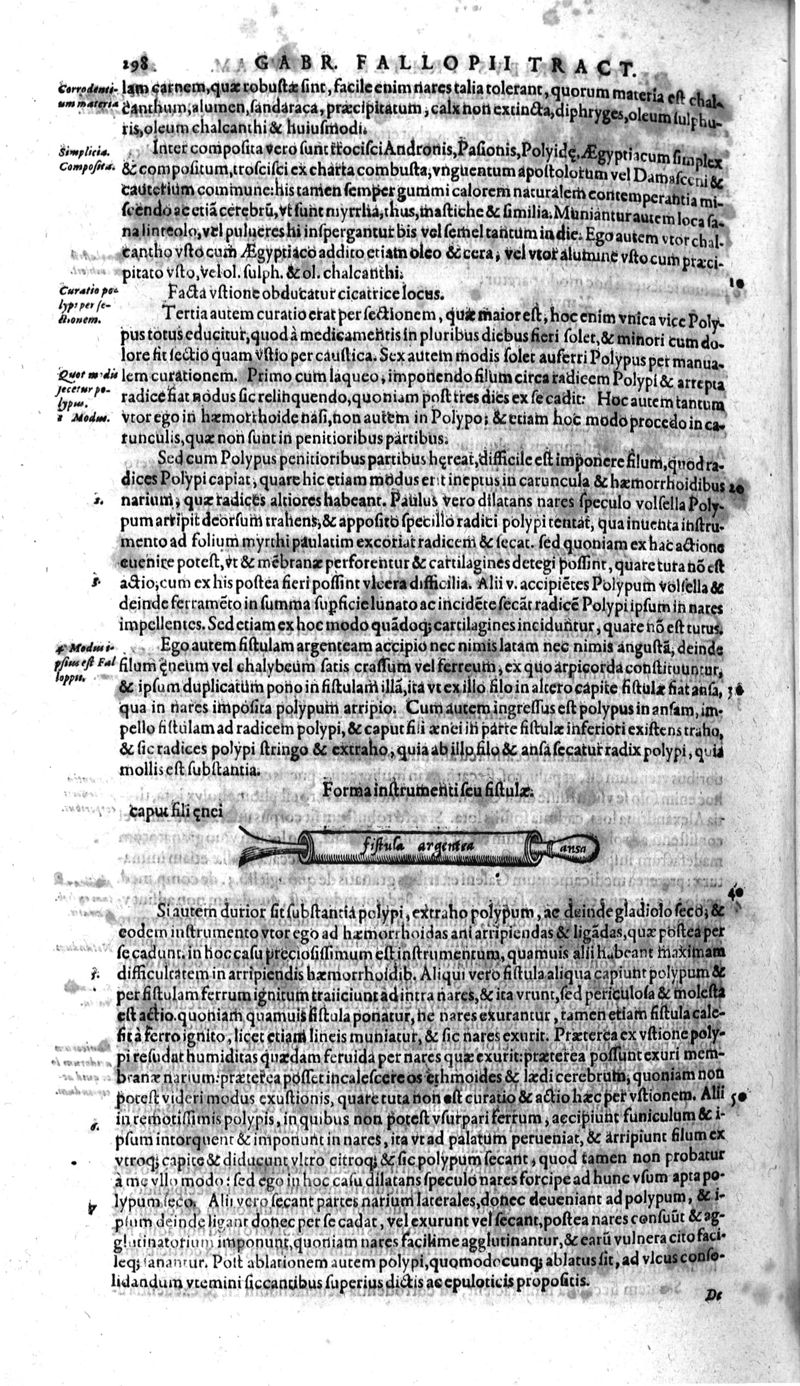 198 GABR. FALLOPII TRACT.
Corrodenti-
um materia
lam carnem, quæ robustæ sint, facile enim nares talia tolerant, quorum materia est chal-
canthum, alumen, sandaraca, præcipitatum, calx non extincta, diphryges, oleum sulphu-
ris, oleum chalcanthi & huiusmodi.
Simplicia.
Composita.
Inter composita vero sunt trocisci Andronis, Pasionis, Polyidę, Ægyptiacum simplex
& compositum, troscisci ex charta combusta, vnguentum apostolorum vel Damasceni &
cauterium commune: his tamen semper gummi calorem naturalem contemperantia mi-
scendo ac etiā cerebrū, vt sunt myrrha, thus, mastiche & similia. Muniantur autem loca sa-
na linteolo, vel pulueres hi inspergantur bis vel semel tantum in die. Ego autem vtor chal-
cantho vsto cum Ægyptiaco addito etiam oleo & cera, vel vtor alumine vsto cum præci-
pitato vsto, vel ol. sulph. & ol. chalcanthi.
10
Curatio po-
lypi per se-
ctionem.
Facta vstione obducatur cicatrice locus.
Tertia autem curatio erat per sectionem, quæ maior est, hoc enim vnica vice Poly-
pus totus educitur, quod à medicamentis in pluribus diebus fieri solet, & minori cum do-
lore fit sectio quam vstio per caustica. Sex autem modis solet auferri Polypus per manua-
Quot modis
secetur po-
lypus.
1 Modus.
lem curationem. Primo cum laqueo, imponendo filum circa radicem Polypi & arrepta
radice fiat nodus sic relinquendo, quoniam post tres dies ex se cadit: Hoc autem tantum
vtor ego in hæmorrhoide nasi, non autem in Polypo; & etiam hoc modo procedo in ca-
runculis, quæ non sunt in penitioribus partibus.
Sed cum Polypus penitioribus partibus hęreat, difficile est imponere filum, quod ra-
dices Polypi capiat, quare hic etiam modus erit ineptus in caruncula & hæmorrhoidibus 20
2. narium, quæ radices altiores habeant. Paulus vero dilatans nares speculo volsella Poly-
pum arripit deorsum trahens, & apposito specillo radici polypi tentat, qua inuenta instru-
mento ad folium myrthi paulatim excoriat radicem & secat. sed quoniam ex hac actione
euenire potest, vt & mēbranæ perforentur & cartilagines detegi possint, quare tuta nō est
3. actio, cum ex his postea fieri possint vlcera difficilia. Alii v. accipiētes Polypum volsella &
deinde ferramēto in summa supficie lunato ac incidēte secāt radicē Polypi ipsum in nares
impellentes. Sed etiam ex hoc modo quādoq; cartilagines inciduntur, quare nō est tutus.
4. Modus i-
psius est Fal
loppii.
Ego autem fistulam argenteam accipio nec nimis latam nec nimis angustā, deinde
filum ęneum vel chalybeum satis crassum vel ferreum, ex quo arpicorda constituuntur,
& ipsum duplicatum pono in fistulam illā, ita vt ex illo filo in altero capite fistulæ fiat ansa, 30
qua in nares imposita polypum arripio. Cum autem ingressus est polypus in ansam, im-
pello fistulam ad radicem polypi, & caput fili ænei in parte fistulæ inferiori existens traho,
& sic radices polypi stringo & extraho, quia ab illo filo & ansa secatur radix polypi, quia
mollis est substantia.
Forma instrumenti seu fistulæ.
caput fili ęnei
fistula argentea
ansa
40
Si autem durior sit substantia polypi, extraho polypum, ac deinde gladiolo seco; &
eodem instrumento vtor ego ad hæmorrhoidas ani arripiendas & ligādas, quæ postea per
se cadunt. in hoc casu preciosissimum est instrumentum, quamuis alii habeant maximam
5. difficultatem in arripiendis hæmorrhoidib. Aliqui vero fistula aliqua capiunt polypum &
per fistulam ferrum ignitum traiiciunt ad intra nares, & ita vrunt, sed periculosa & molesta
est actio. quoniam quamuis fistula ponatur, ne nares exurantur, tamen etiam fistula cale-
fit à ferro ignito, licet etiam lineis muniatur, & sic nares exurit. Præterea ex vstione poly-
pi resudat humiditas quædam feruida per nares quæ exurit: præterea possunt exuri mem-
branæ narium: præterea posset incalescere os ethmoides & lædi cerebrum, quoniam non
potest videri modus exustionis, quare tuta non est curatio & actio hæc per vstionem. Alii 50
6. in remotissimis polypis, in quibus non potest vsurpari ferrum, accipiunt funiculum & i-
psum intorquent & imponunt in nares, ita vt ad palatum perueniat, & arripiunt filum ex
vtroq; capite & diducunt vltro citroq; & sic polypum secant, quod tamen non probatur
à me vllo modo: sed ego in hoc casu dilatans speculo nares forcipe ad hunc vsum apta po-
lypum seco. Alii vero secant partes narium laterales, donec deueniant ad polypum, & i-
psum deinde ligant donec per se cadat, vel exurunt vel secant, postea nares consuūt & ag-
glutinatorium imponunt, quoniam nares facilime agglutinantur, & earū vulnera cito faci-
leq; sanantur. Post ablationem autem polypi, quomodocunq; ablatus sit, ad vlcus conso-
lidandum vtemini siccantibus superius dictis ac epuloticis propositis.
De